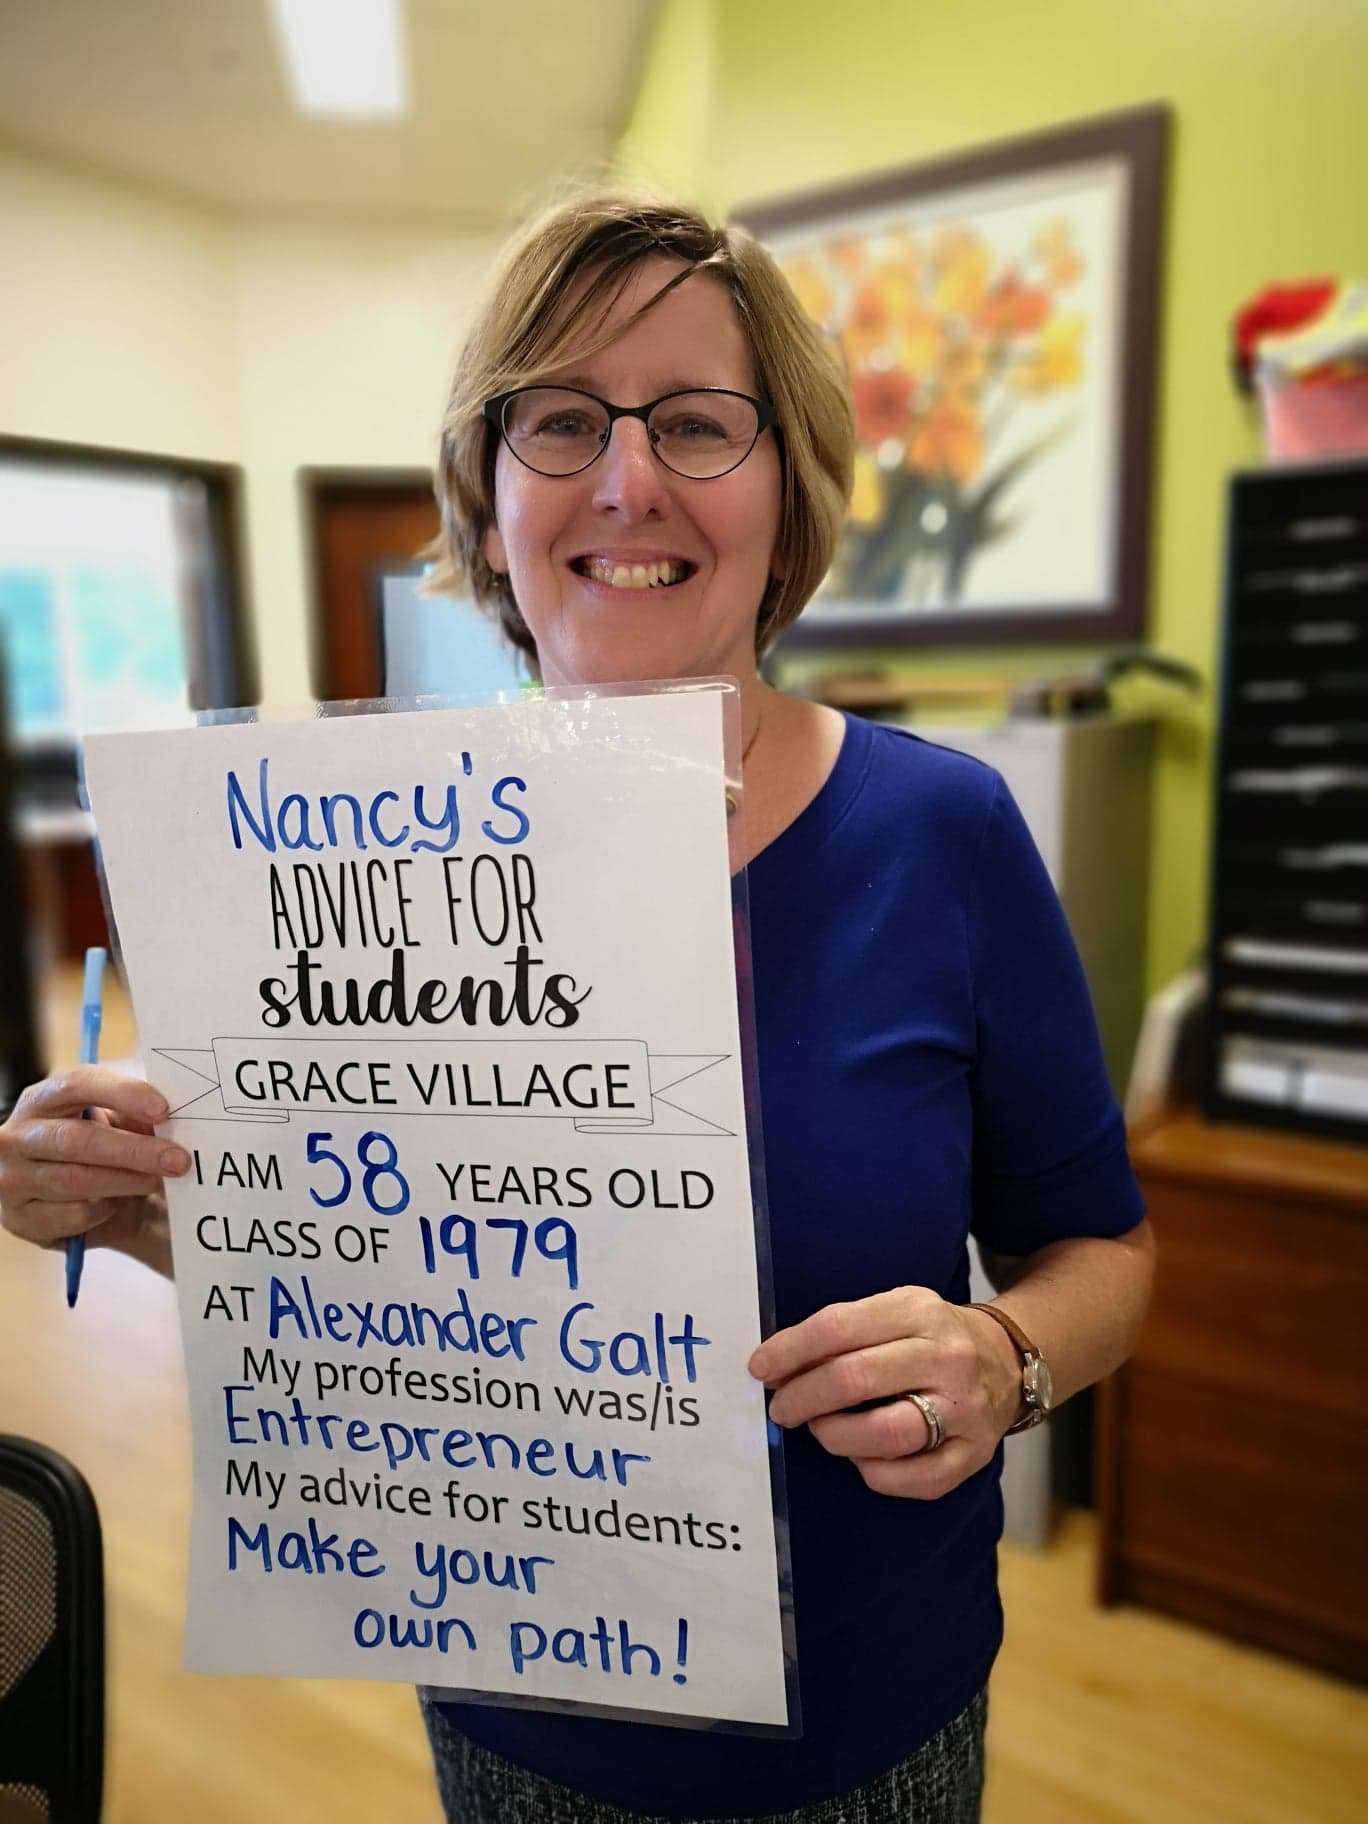 Nancy's
ADVICE FOR
students
GRACE VILLAGE
I AM 58 YEARS OLD
CLASS OF 1979
AT Alexander Galt
My profession was/is
Entrepreneur
My advice for students:
Make your
own path!